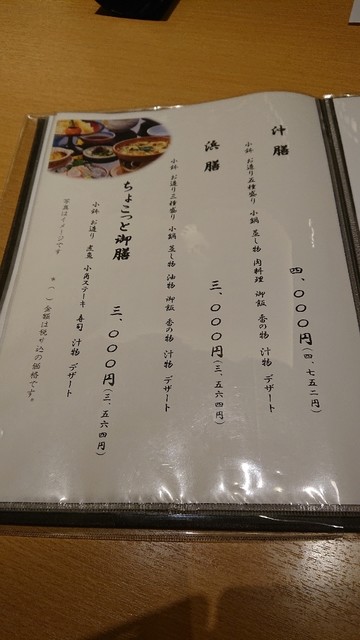 汁膳
小鉢 お造り五種盛り 小鍋 蒸し物 肉料理 御飯 香の物 汁物 デザート
四、〇〇〇円(四、七五二円)
浜膳
小鉢 お造り三種盛り 小鍋 蒸し物 油物 御飯 香の物 汁物 デザート
三、〇〇〇円(三、五六四円)
ちょこっと御膳
小鉢 お造り 煮魚 小角ステーキ 寿司 汁物 デザート
三、〇〇〇円(三、五六四円)
写真はイメージです
*( )金額は税サ込の価格です。